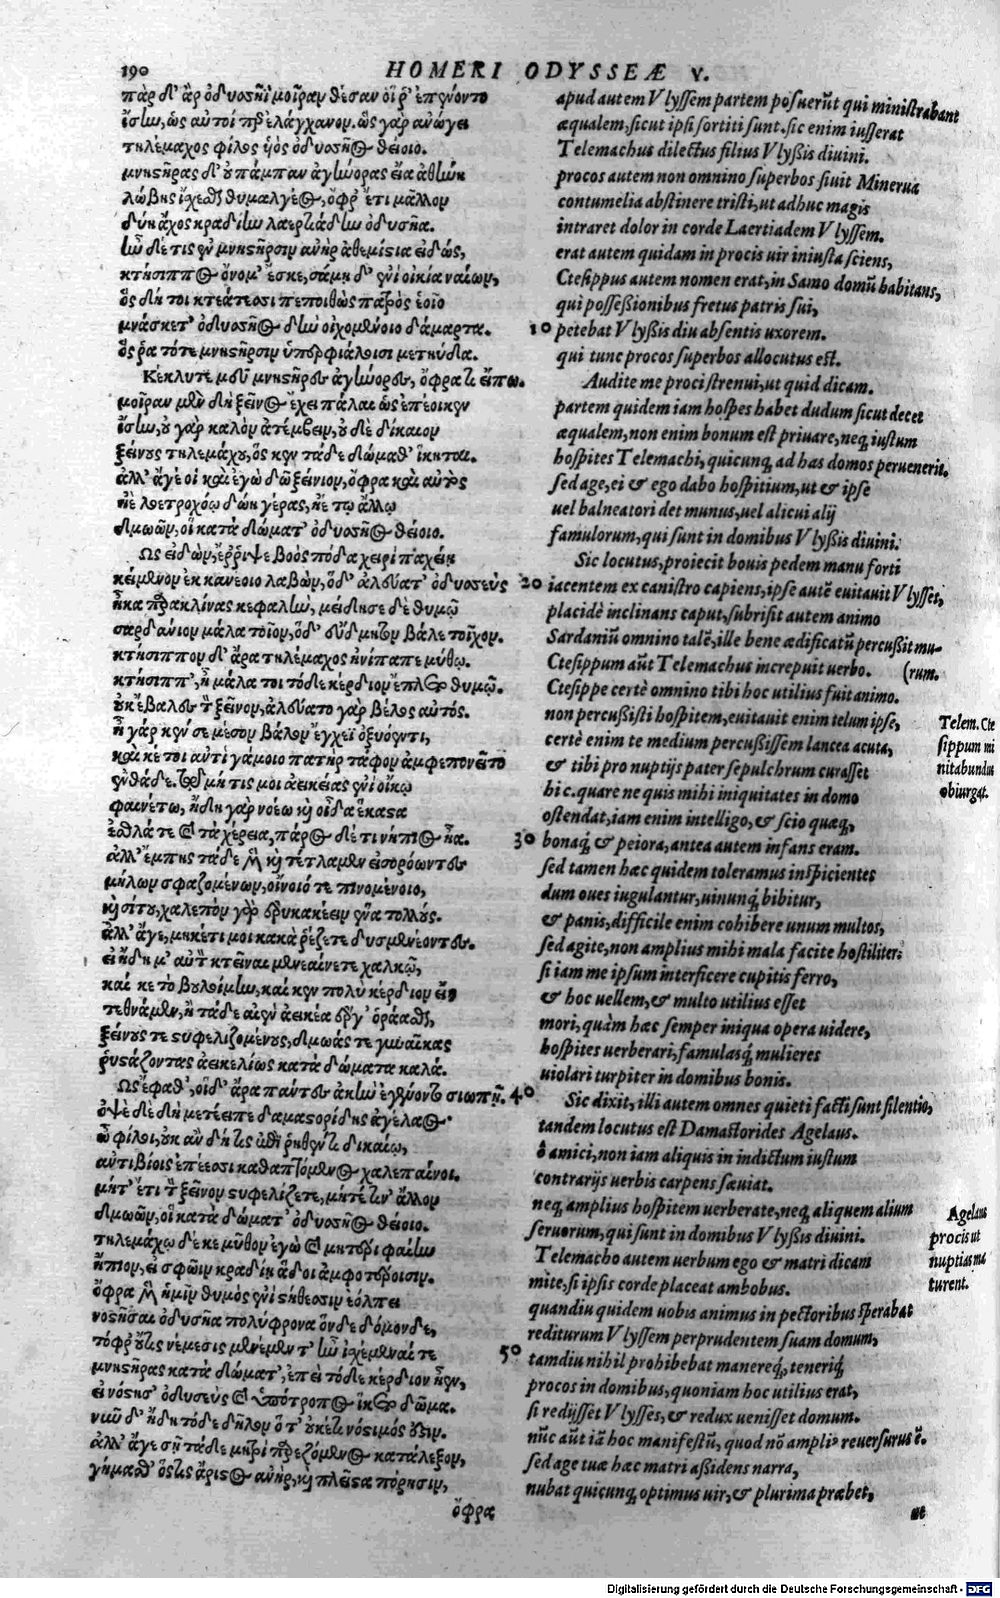 190
HOMERI ODYSSEÆ Υ.
πὰρ δ' ἂρ ὀδυσσῆϊ μοῖραν θέσαν οἵ ῥ' ἐπένοντο
ἴσην, ὡς αὐτοί περ ἐλάγχανον, ὣς γὰρ ἀνώγει
τηλέμαχος φίλος ἡὸς ὀδυσσῆος θείοιο.
μνηστῆρας δ' οὐ πάμπαν ἀγήνορας εἴα ἀθήνη
λώβης ἴσχεσθαι θυμαλγέος, ὄφρ' ἔτι μᾶλλον
δύη ἄχος κραδίην λαερτιάδην ὀδυσῆα.
ἦν δέ τις ἐν μνηστῆρσιν ἀνὴρ ἀθεμίστια εἰδώς,
κτήσιππος ὄνομ' ἔσκε, σάμῃ δ' ἐνὶ οἰκία ναίων,
ὃς δή τοι κτεάτεσσι πεποιθὼς πατρὸς ἑοῖο
μνάσκετ' ὀδυσσῆος δὴν οἰχομένοιο δάμαρτα.
ὅς ῥα τότε μνηστῆρσιν ὑπερφιάλοισι μετηύδα.
Κέκλυτέ μευ μνηστῆρες ἀγήνορες, ὄφρα τι εἴπω.
μοῖραν μὲν δὴ ξεῖνος ἔχει πάλαι ὡς ἐπέοικεν
ἴσην, οὐ γὰρ καλὸν ἀτέμβειν, οὐδὲ δίκαιον
ξείνους τηλεμάχου, ὅς κεν τάδε δώμαθ' ἵκηται.
ἀλλ' ἄγε οἱ καὶ ἐγὼ δῶ ξείνιον, ὄφρα καὶ αὐτὸς
ἠὲ λοετροχόῳ δώη γέρας, ἠέ τῳ ἄλλῳ
δμώων, οἳ κατὰ δώματ' ὀδυσσῆος θείοιο.
Ως εἰπὼν, ἔρριψε βοὸς πόδα χειρὶ παχείη
κείμενον ἐκ κανέοιο λαβὼν, ὅδ' ἀλεύατ' ὀδυσσεὺς
ἦκα παρακλίνας κεφαλήν, μείδησε δὲ θυμῷ
σαρδάνιον μάλα τοῖον, ὅδ' εὔδμητον βάλε τοῖχον.
κτήσιππον δ' ἄρα τηλέμαχος ἠνίπαπε μύθῳ.
κτήσιππ', ἦ μάλα τοι τόδε κέρδιον ἔπλετο θυμῷ.
οὐκ ἔβαλες τὸν ξεῖνον, ἀλεύατο γὰρ βέλος αὐτός.
ἦ γάρ κέν σε μέσον βάλον ἔγχεϊ ὀξυόεντι,
καί κέ τοι ἀντὶ γάμοιο πατὴρ τάφον ἀμφεπονεῖτο
ἐνθάδε. τῷ μή τις μοι ἀεικείας ἐνὶ οἴκῳ
φαινέτω, ἤδη γὰρ νοέω καὶ οἶδα ἕκαστα
ἐσθλά τε καὶ τὰ χέρεια, πάρος δέ τι νήπιος ἦα.
ἀλλ' ἔμπης τάδε μὲν καὶ τέτλαμεν εἰσορόωντες
μήλων σφαζομένων, οἴνοιό τε πινομένοιο,
καὶ σίτου, χαλεπὸν γὰρ ἐρυκακέειν ἕνα πολλούς.
ἀλλ' ἄγε, μηκέτι μοι κακὰ ῥέζετε δυσμενέοντες.
εἰ ἤδη μ' αὐτὸν κτεῖναι μενεαίνετε χαλκῷ,
καί κε τὸ βουλοίμην, καί κεν πολὺ κέρδιον εἴη
τεθνάμεν, ἢ τάδε αἰὲν ἀεικέα ἔργ' ὁράασθαι,
ξείνους τε στυφελιζομένους, δμωάς τε γυναῖκας
ῥυστάζοντας ἀεικελίως κατὰ δώματα καλά.
Ως ἔφαθ', οἱ δ' ἄρα πάντες ἀκὴν ἐγένοντο σιωπῇ.
ὀψὲ δὲ δὴ μετέειπε δαμαστορίδης ἀγέλαος.
ὦ φίλοι, οὐκ ἂν δή τις ἐπὶ ῥηθέντι δικαίῳ,
ἀντιβίοις ἐπέεσσι καθαπτόμενος χαλεπαίνοι.
μήτ' ἔτι τὸν ξεῖνον στυφελίζετε, μήτέ τιν' ἄλλον
δμώων, οἳ κατὰ δώματ' ὀδυσσῆος θείοιο.
τηλεμάχῳ δέ κε μῦθον ἐγὼ καὶ μητέρι φαίην
ἤπιον, εἴ σφωιν κραδίη ἅδοι ἀμφοτέροιιν.
ὄφρα μὲν ὑμῖν θυμὸς ἐνὶ στήθεσσιν ἐόλπει
νοστῆσαι ὀδυσῆα πολύφρονα ὅνδε δόμονδε,
τόφρ' οὔτις νέμεσις μενέμεν τ' ἦν ἰχέμεναί τε
μνηστῆρας κατὰ δώματ', ἐπεὶ τόδε κέρδιον ἦεν,
εἰ νόστησ' ὀδυσεὺς καὶ ὑπότροπος ἵκετο δῶμα.
νῦν δ' ἤδη τόδε δῆλον ὅ τ' οὐκέτι νόστιμός ἐστιν.
ἀλλ' ἄγε σῇ τάδε μητρὶ παρεζόμενος κατάλεξον,
γήμασθ' ὅστις ἄριστος ἀνὴρ, καὶ πλεῖστα πόρησιν,
ὄφρα
apud autem Vlyssem partem posuerūt qui ministrabant
æqualem, sicut ipsi sortiti sunt. sic enim iusserat
Telemachus dilectus filius Vlyßis diuini.
procos autem non omnino superbos siuit Minerua
contumelia abstinere tristi, ut adhuc magis
intraret dolor in corde Laertiadem Vlyssem.
erat autem quidam in procis uir iniusta sciens,
Ctesippus autem nomen erat, in Samo domū habitans,
qui posseßionibus fretus patris sui,
10 petebat Vlyßis diu absentis uxorem.
qui tunc procos superbos allocutus est.
Audite me proci strenui, ut quid dicam.
partem quidem iam hospes habet dudum sicut decet
æqualem, non enim bonum est priuare, neq; iustum
hospites Telemachi, quicunq; ad has domos peruenerit.
sed age, ei & ego dabo hospitium, ut & ipse
uel balneatori det munus, uel alicui alij
famulorum, qui sunt in domibus Vlyßis diuini.
Sic locutus, proiecit bouis pedem manu forti
20 iacentem ex canistro capiens, ipse autē euitauit Vlysses,
placidè inclinans caput, subrisit autem animo
Sardaniū omnino talē, ille bene ædificatū percußit mu-
(rum.
Ctesippum aūt Telemachus increpuit uerbo.
Ctesippe certè omnino tibi hoc utilius fuit animo.
non percußisti hospitem, euitauit enim telum ipse,
certè enim te medium percußissem lancea acuta,
& tibi pro nuptijs pater sepulchrum curasset
hic. quare ne quis mihi iniquitates in domo
ostendat, iam enim intelligo, & scio quæq;
30 bonaq; & peiora, antea autem infans eram.
sed tamen hæc quidem toleramus inspicientes
dum oues iugulantur, uinunq; bibitur,
& panis, difficile enim cohibere unum multos,
sed agite, non amplius mihi mala facite hostiliter:
si iam me ipsum interficere cupitis ferro,
& hoc uellem, & multo utilius esset
mori, quàm hæc semper iniqua opera uidere,
hospites uerberari, famulasq; mulieres
uiolari turpiter in domibus bonis.
40 Sic dixit, illi autem omnes quieti facti sunt silentio,
tandem locutus est Damastorides Agelaus.
ô amici, non iam aliquis in indictum iustum
contrarijs uerbis carpens sæuiat.
neq; amplius hospitem uerberate, neq; aliquem alium
seruorum, qui sunt in domibus Vlyßis diuini.
Telemacho autem uerbum ego & matri dicam
mite, si ipsis corde placeat ambobus.
quandiu quidem uobis animus in pectoribus sperabat
rediturum Vlyssem perprudentem suam domum,
50 tamdiu nihil prohibebat manereq; teneriq;
procos in domibus, quoniam hoc utilius erat,
si redijsset Vlysses, & redux uenisset domum.
nūc aūt iā hoc manifestū, quod nō ampliꝰ reuersurus ē.
sed age tuæ hæc matri aßidens narra,
nubat quicunq; optimus uir, & plurima præbet,
ut
Telem. Cte
sippum mi
nitabundus
obiurgat.
Agelaus
procis ut
nuptias ma
turent.
Digitalisierung gefördert durch die Deutsche Forschungsgemeinschaft - DFG